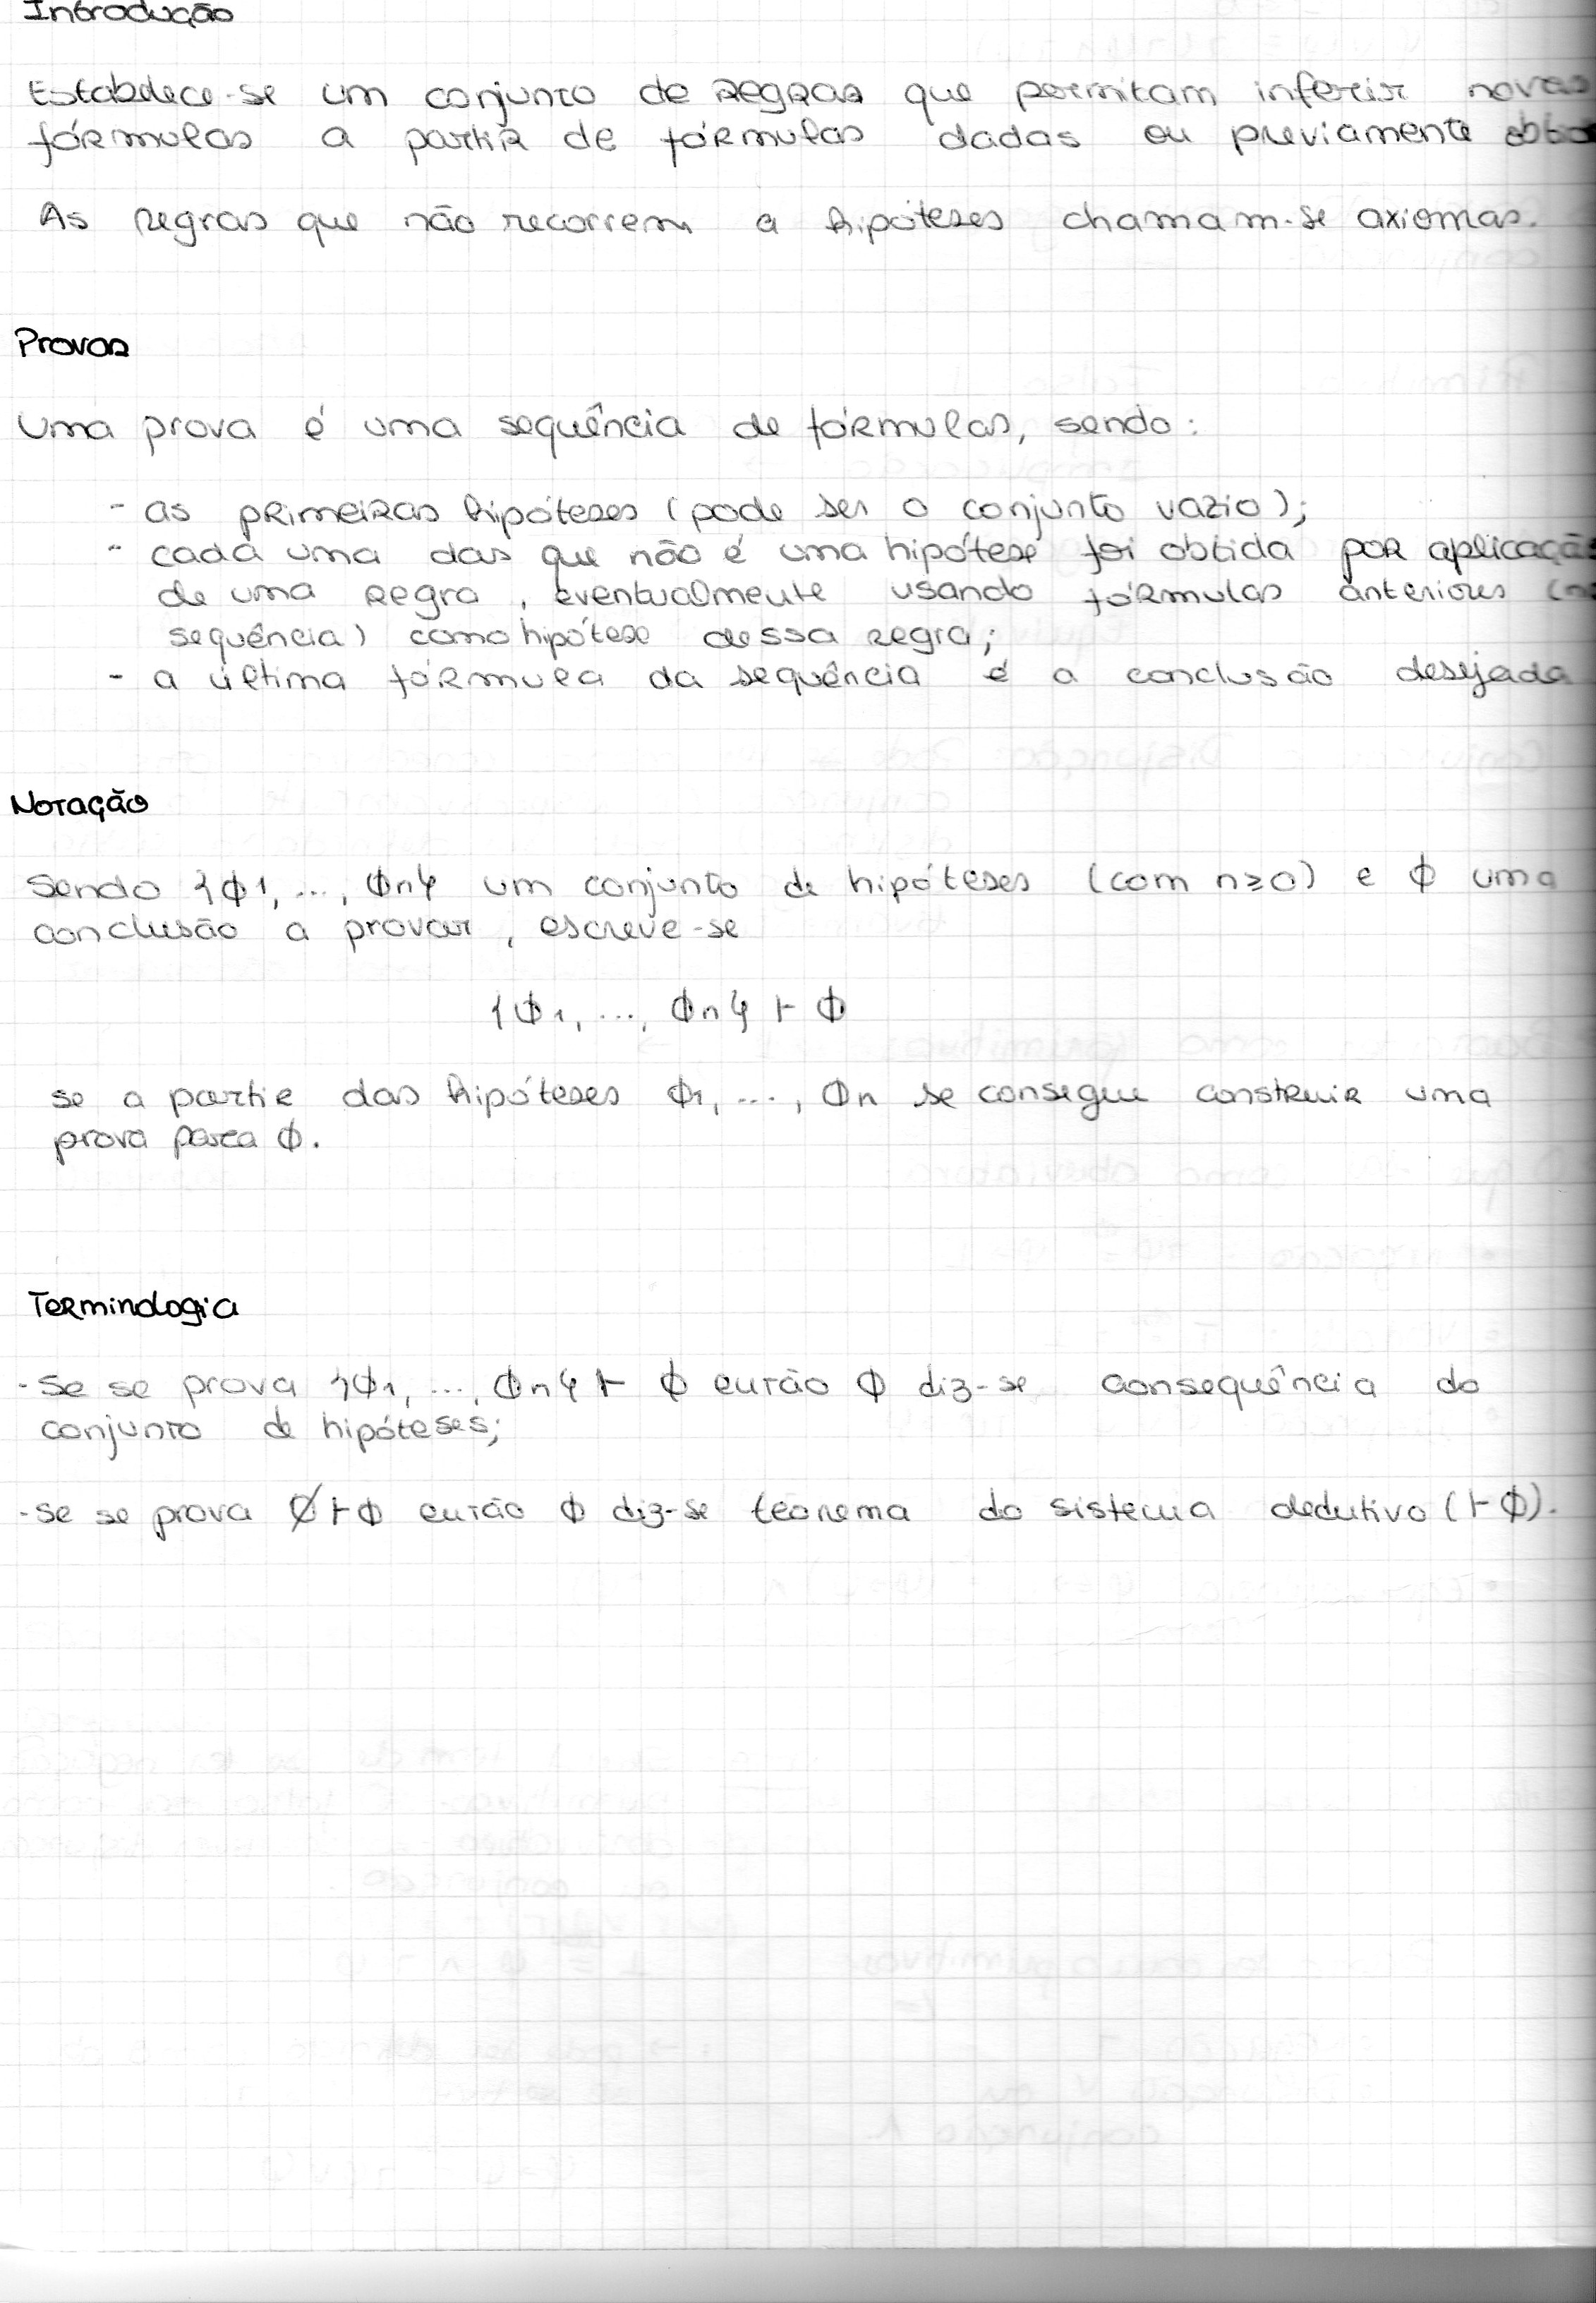 Introdução
Estabelece-se um conjunto de regras que permitam inferir novas
fórmulas a partir de fórmulas dadas ou previamente
As regras que não recorrem a hipóteses chamam-se axiomas.
Provas
Uma prova é uma sequência de fórmulas, sendo:
- as primeiras hipóteses (pode ser o conjunto vazio);
- cada uma das que não é uma hipótese foi obtida por aplicaçã
de uma regra, eventualmente usando fórmulas anteriores (n
sequência) como hipótese dessa regra;
- a última fórmula da sequência é a conclusão desejada
Notação
Sendo {ϕ1, ..., ϕn} um conjunto de hipóteses (com n≥0) e ϕ uma
conclusão a provar, escreve-se
{ϕ1, ..., ϕn} ⊢ ϕ
se a partir das hipóteses ϕ1, ..., ϕn se consegue construir uma
prova para ϕ.
Terminologia
- Se se prova {ϕ1, ..., ϕn} ⊢ ϕ então ϕ diz-se consequência do
conjunto de hipóteses;
- se se prova ∅ ⊢ ϕ então ϕ diz-se teorema do sistema dedutivo (⊢ ϕ).